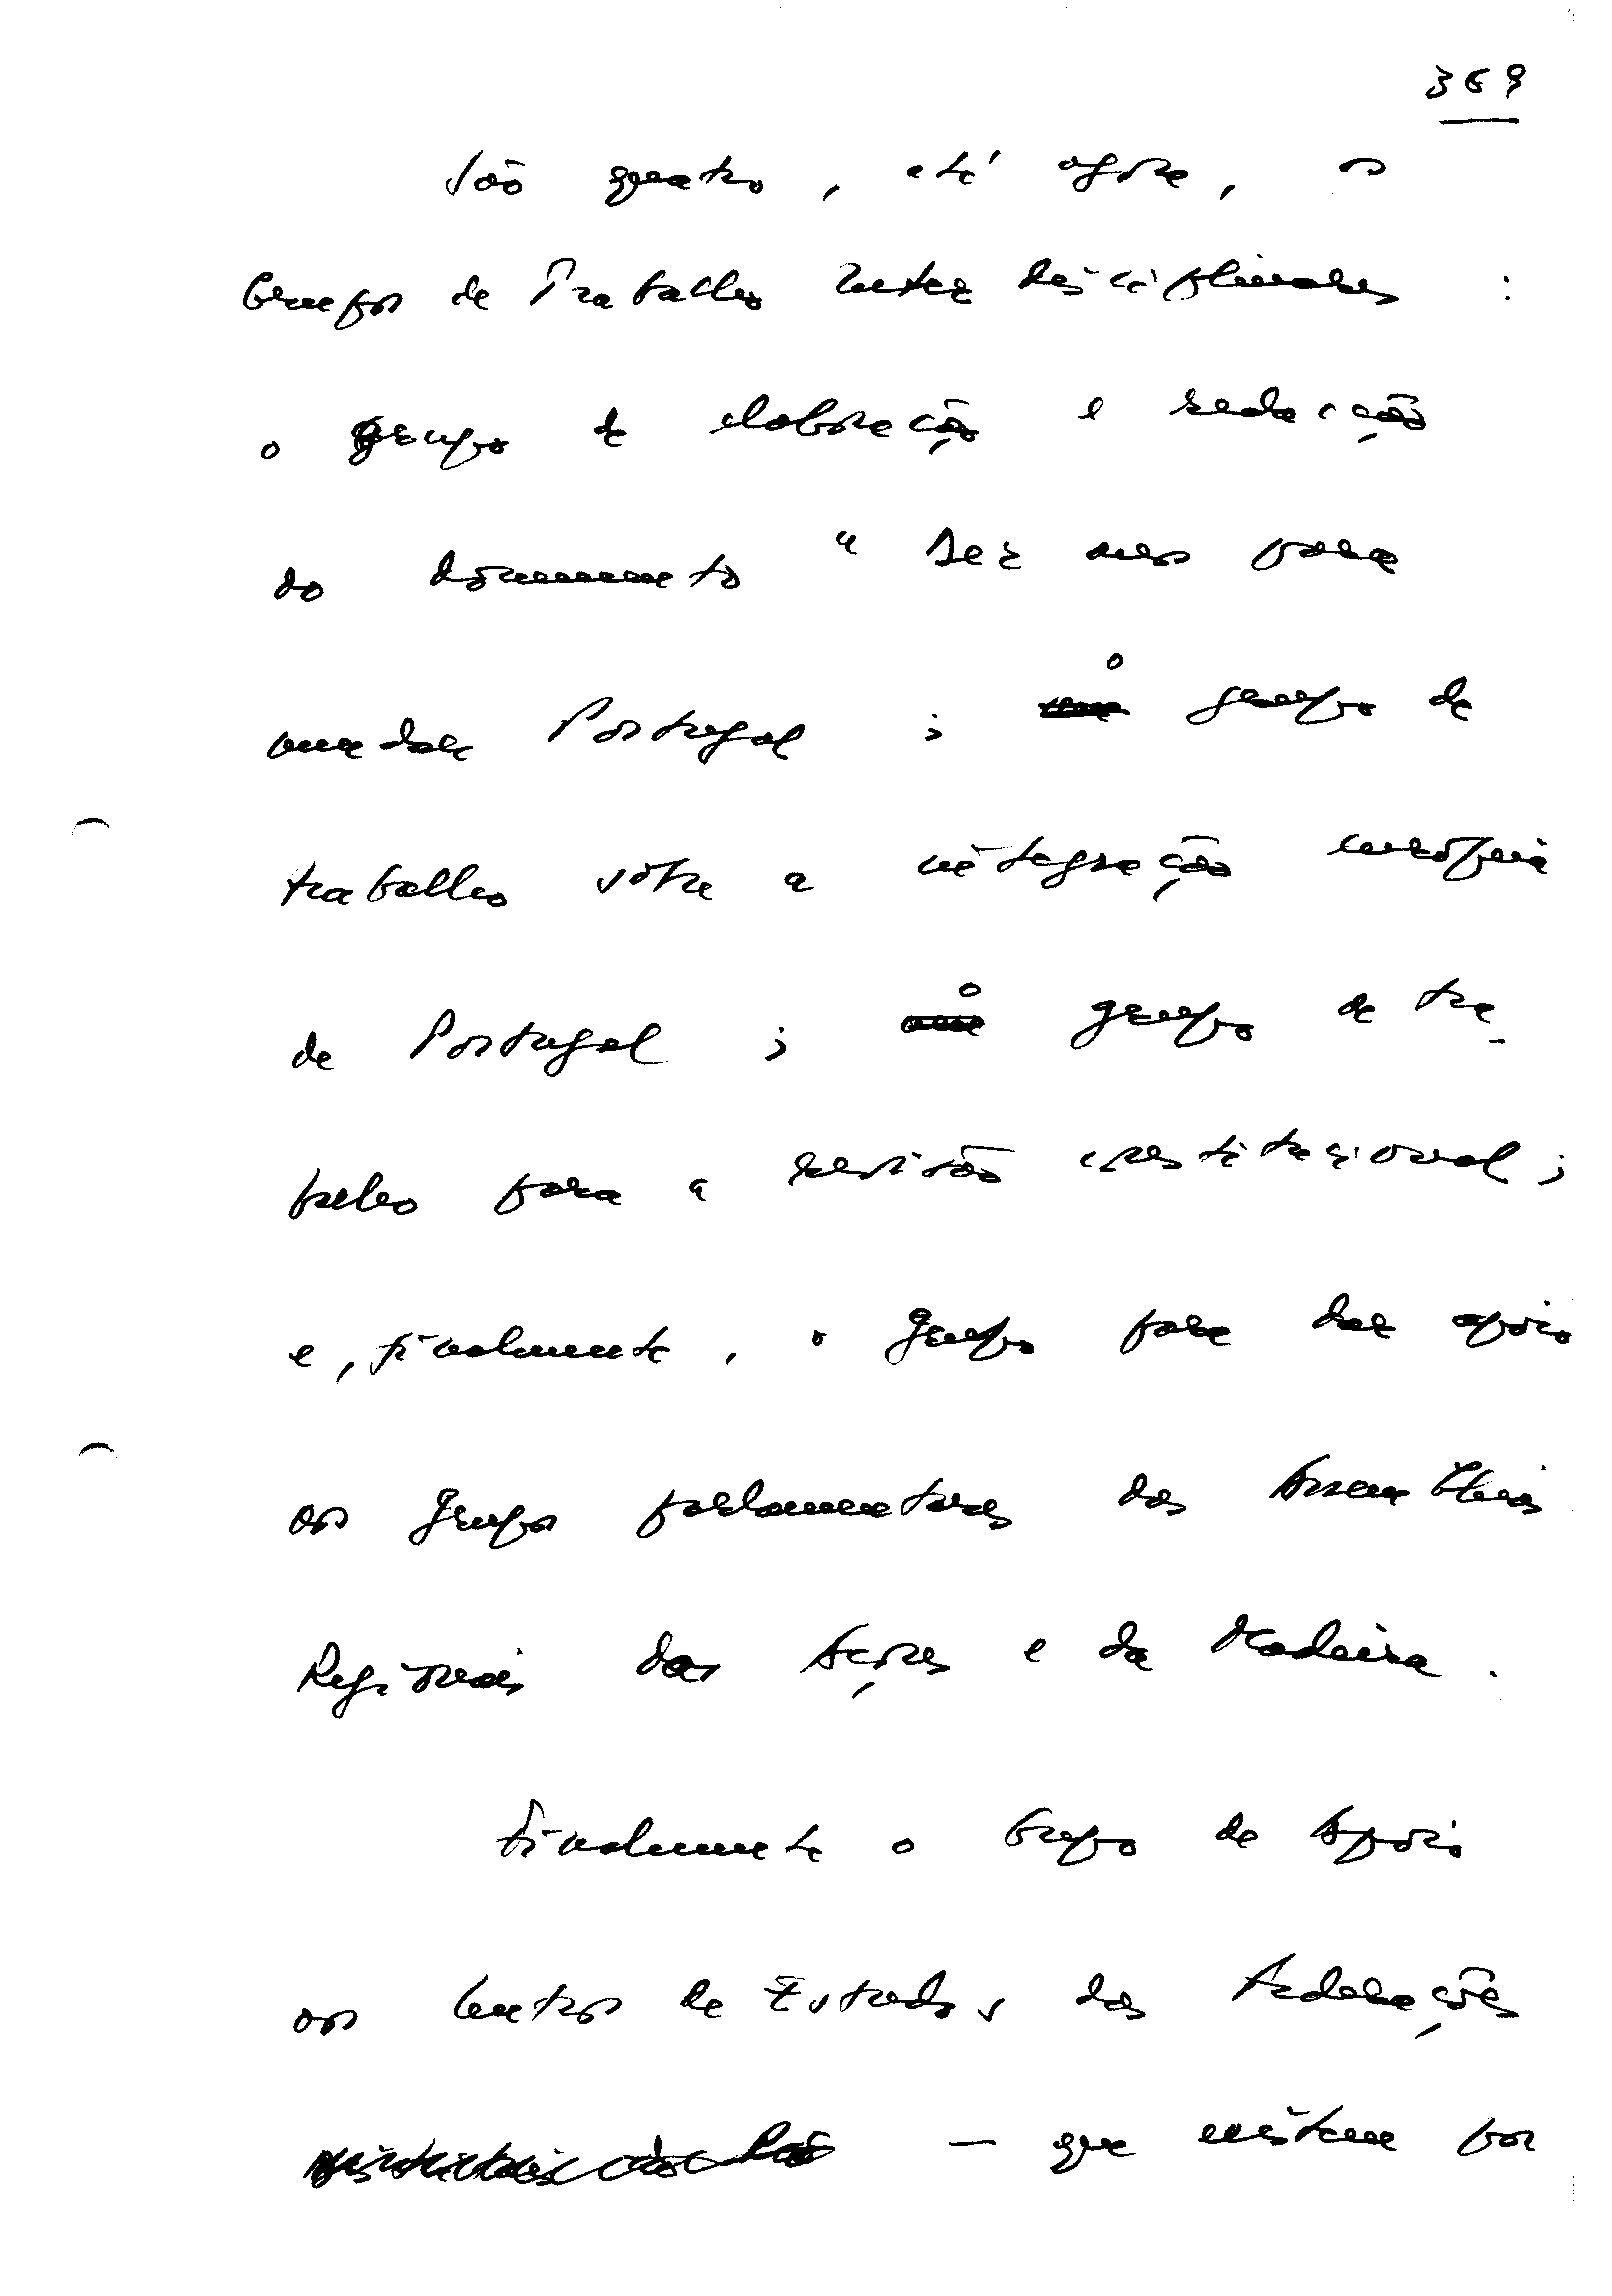 369
São quatro, até agora, os
Grupos de Trabalho Interdisciplinares :
o grupo de elaboração e redacção
do documento " Dez anos para
mudar Portugal ; o grupo de
trabalho sobre a integração europeia
de Portugal ; o grupo de tra-
balho para a revisão constitucional ;
e, finalmente, o grupo para dar apoio
aos grupos parlamentares das Assembleias
Regionais dos Açores e da Madeira.
Finalmente o Grupo de Apoio
aos Centros de Estudos das Federações
— que existem por